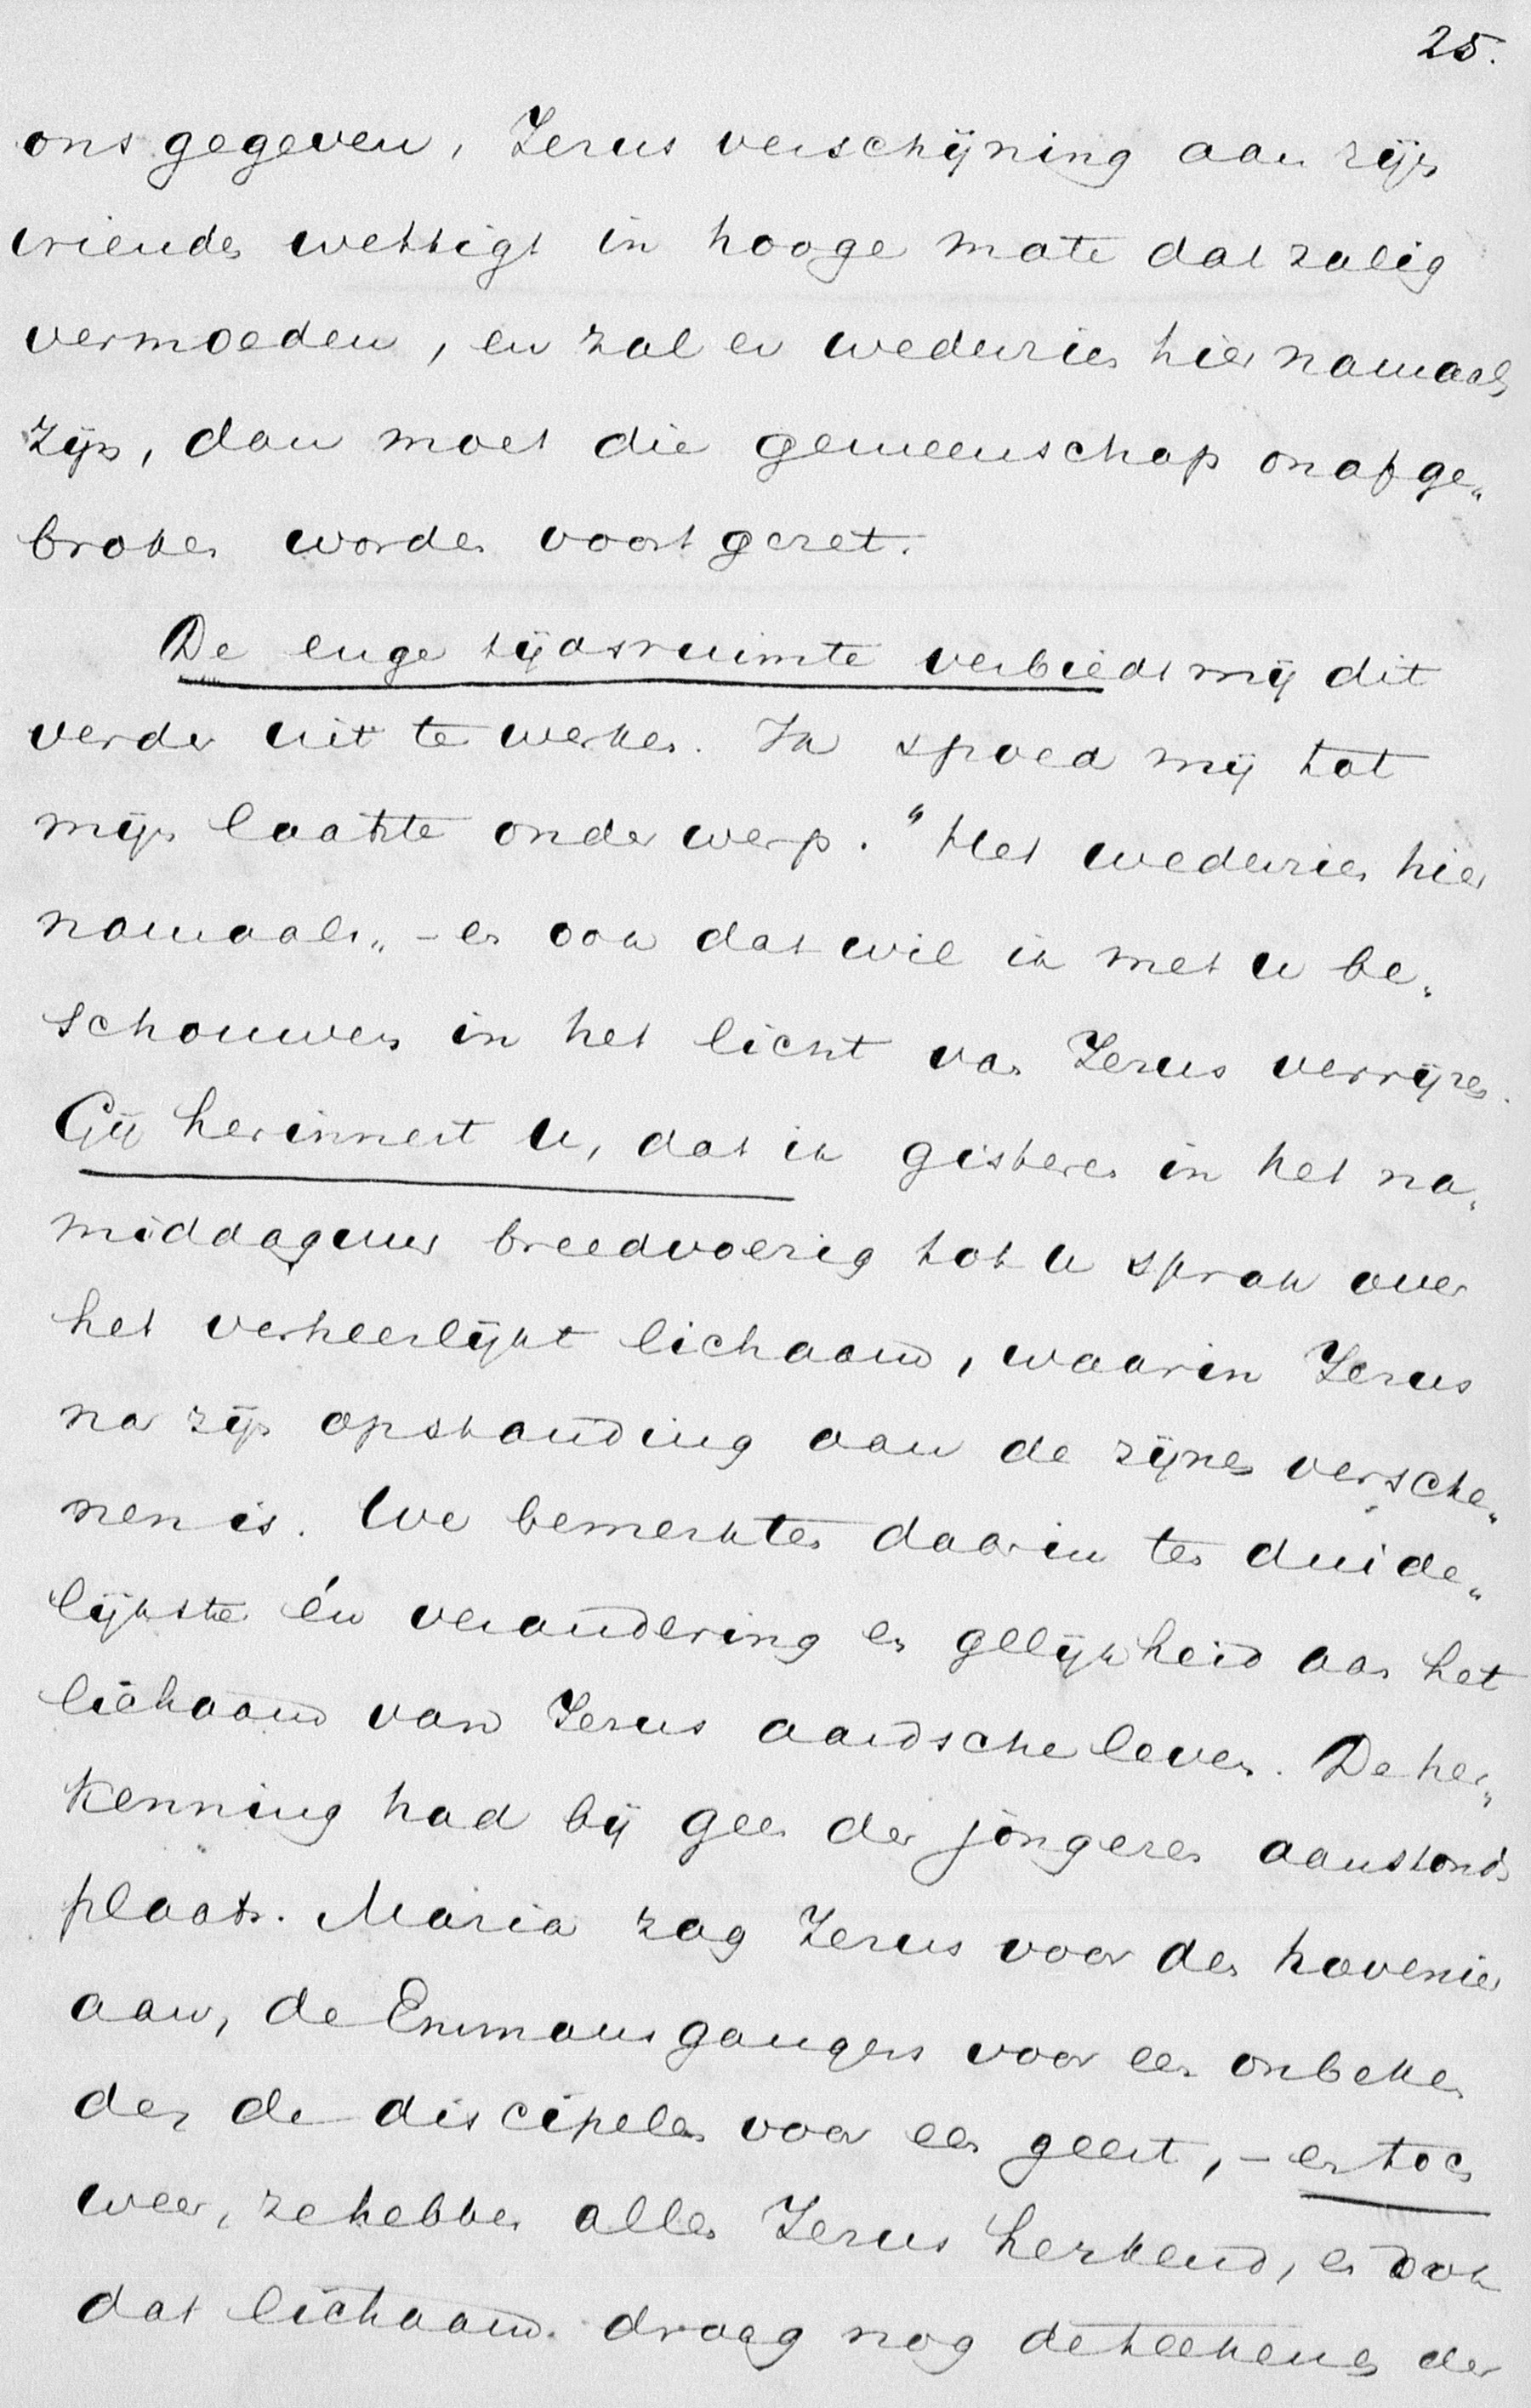 25.
ons gegeven, Jezus verschijning aan zijn
vrienden wettigt in hooge mate dat zalig
vermoeden, en zal er wederzien hier namaals
zijn, dan moet die gemeenschap onafge„
broken worden voortgezet.
De enge tijdsruimte verbiedt mij dit
verder uit te werken. Ik spoed mij tot
mijn laatste onderwerp. "Het wederzien hier
namaals„ - en ook dat wil ik met u be„
schouwen in het licht van Jezus verrijzen.
Gij herinnert u, dat ik gisteren in het na„
middaguur breedvoerig tot u sprak over
het verheerlijkt lichaam, waarin Jezus
na zijn opstanding aan de zijnen versche„
nen is. We bemerkten daarin ten duide„
lijkste én verandering en gelijkheid aan het
lichaam van Jezus aardsche leven. De her„
kenning had bij geen der jongeren aanstonds
plaats. Maria zag Jezus voor den hovenier
aan, de Emmausgangers voor een onbeken
den de discipelen voor een geest, - en toch
weer, ze hebben allen Jezus herkend, en ook
dat lichaam draag nog de teekenen der